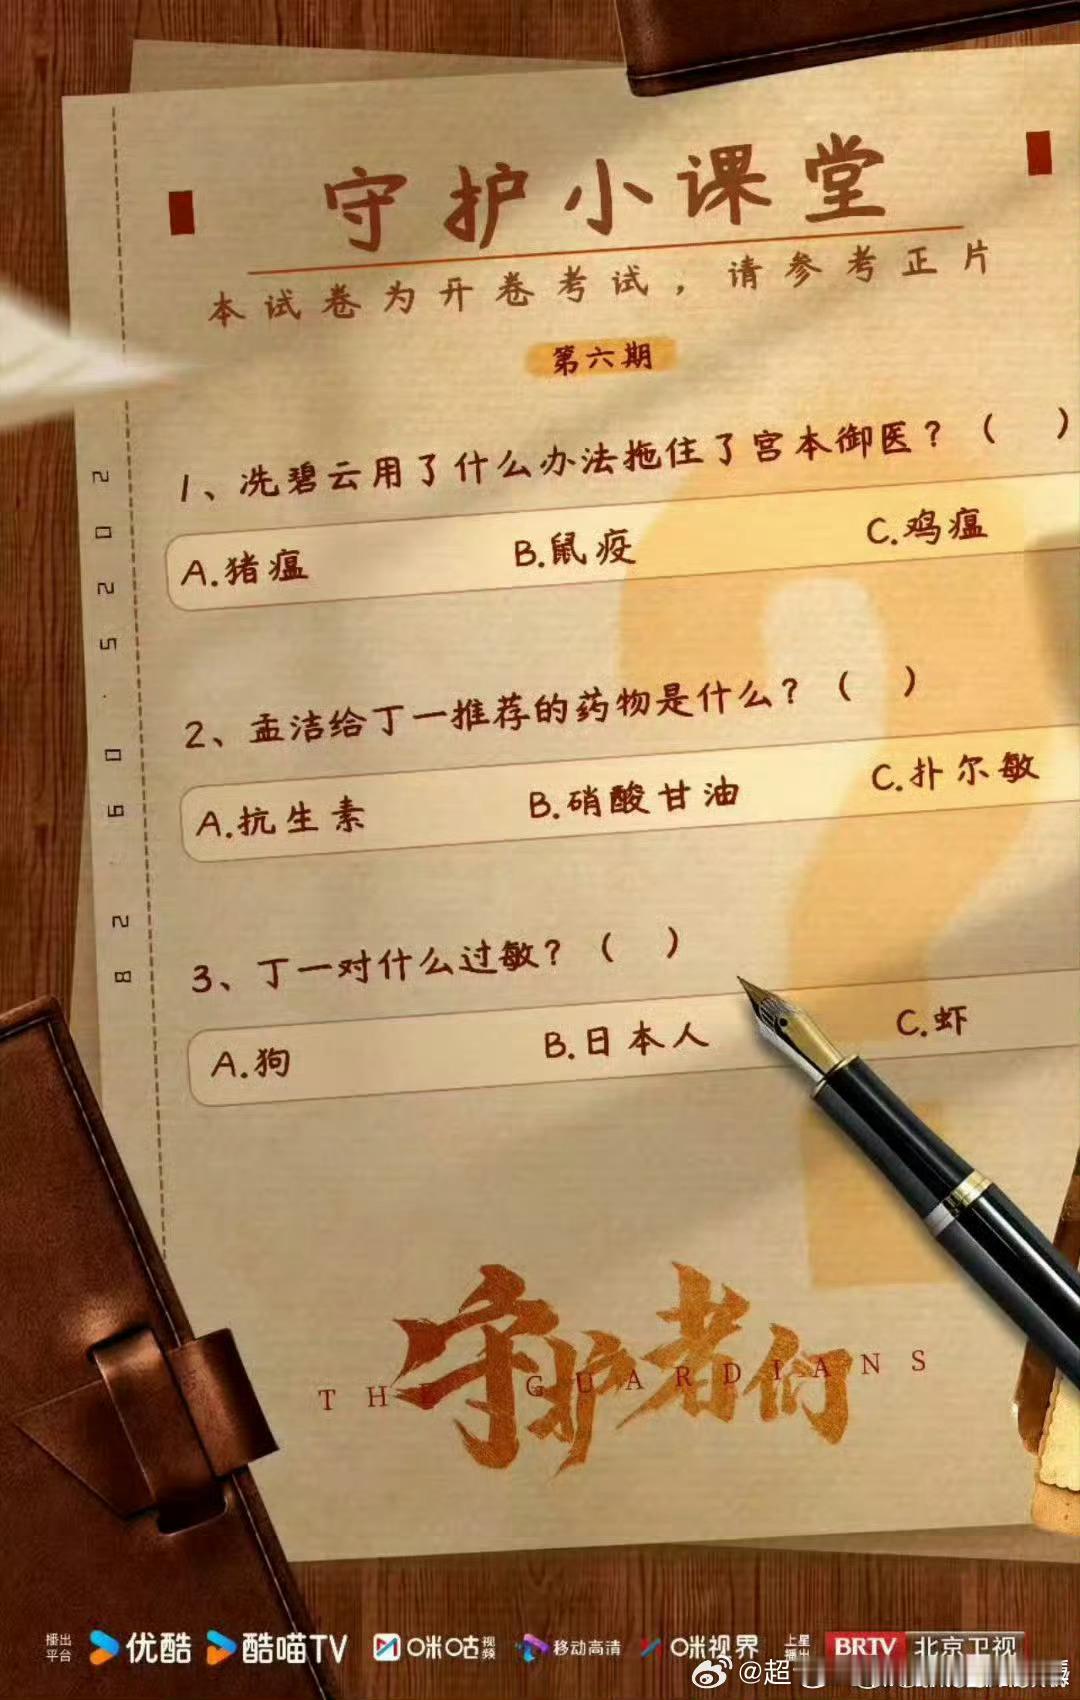 守护小课堂
本试卷为开卷考试，请参考正片
第六期
2025.09.28
1、冼碧云用了什么办法拖住了宫本御医？（ ）
A.猪瘟 B.鼠疫 C.鸡瘟
2、孟洁给丁一推荐的药物是什么？（ ）
A.抗生素 B.硝酸甘油 C.扑尔敏
3、丁一对什么过敏？（ ）
A.狗 B.日本人 C.虾
守护者们
THE GUARDIANS
播出平台 优酷 酷喵TV 咪咕视频 移动高清 咪视界 上星播出 BRTV 北京卫视
@超